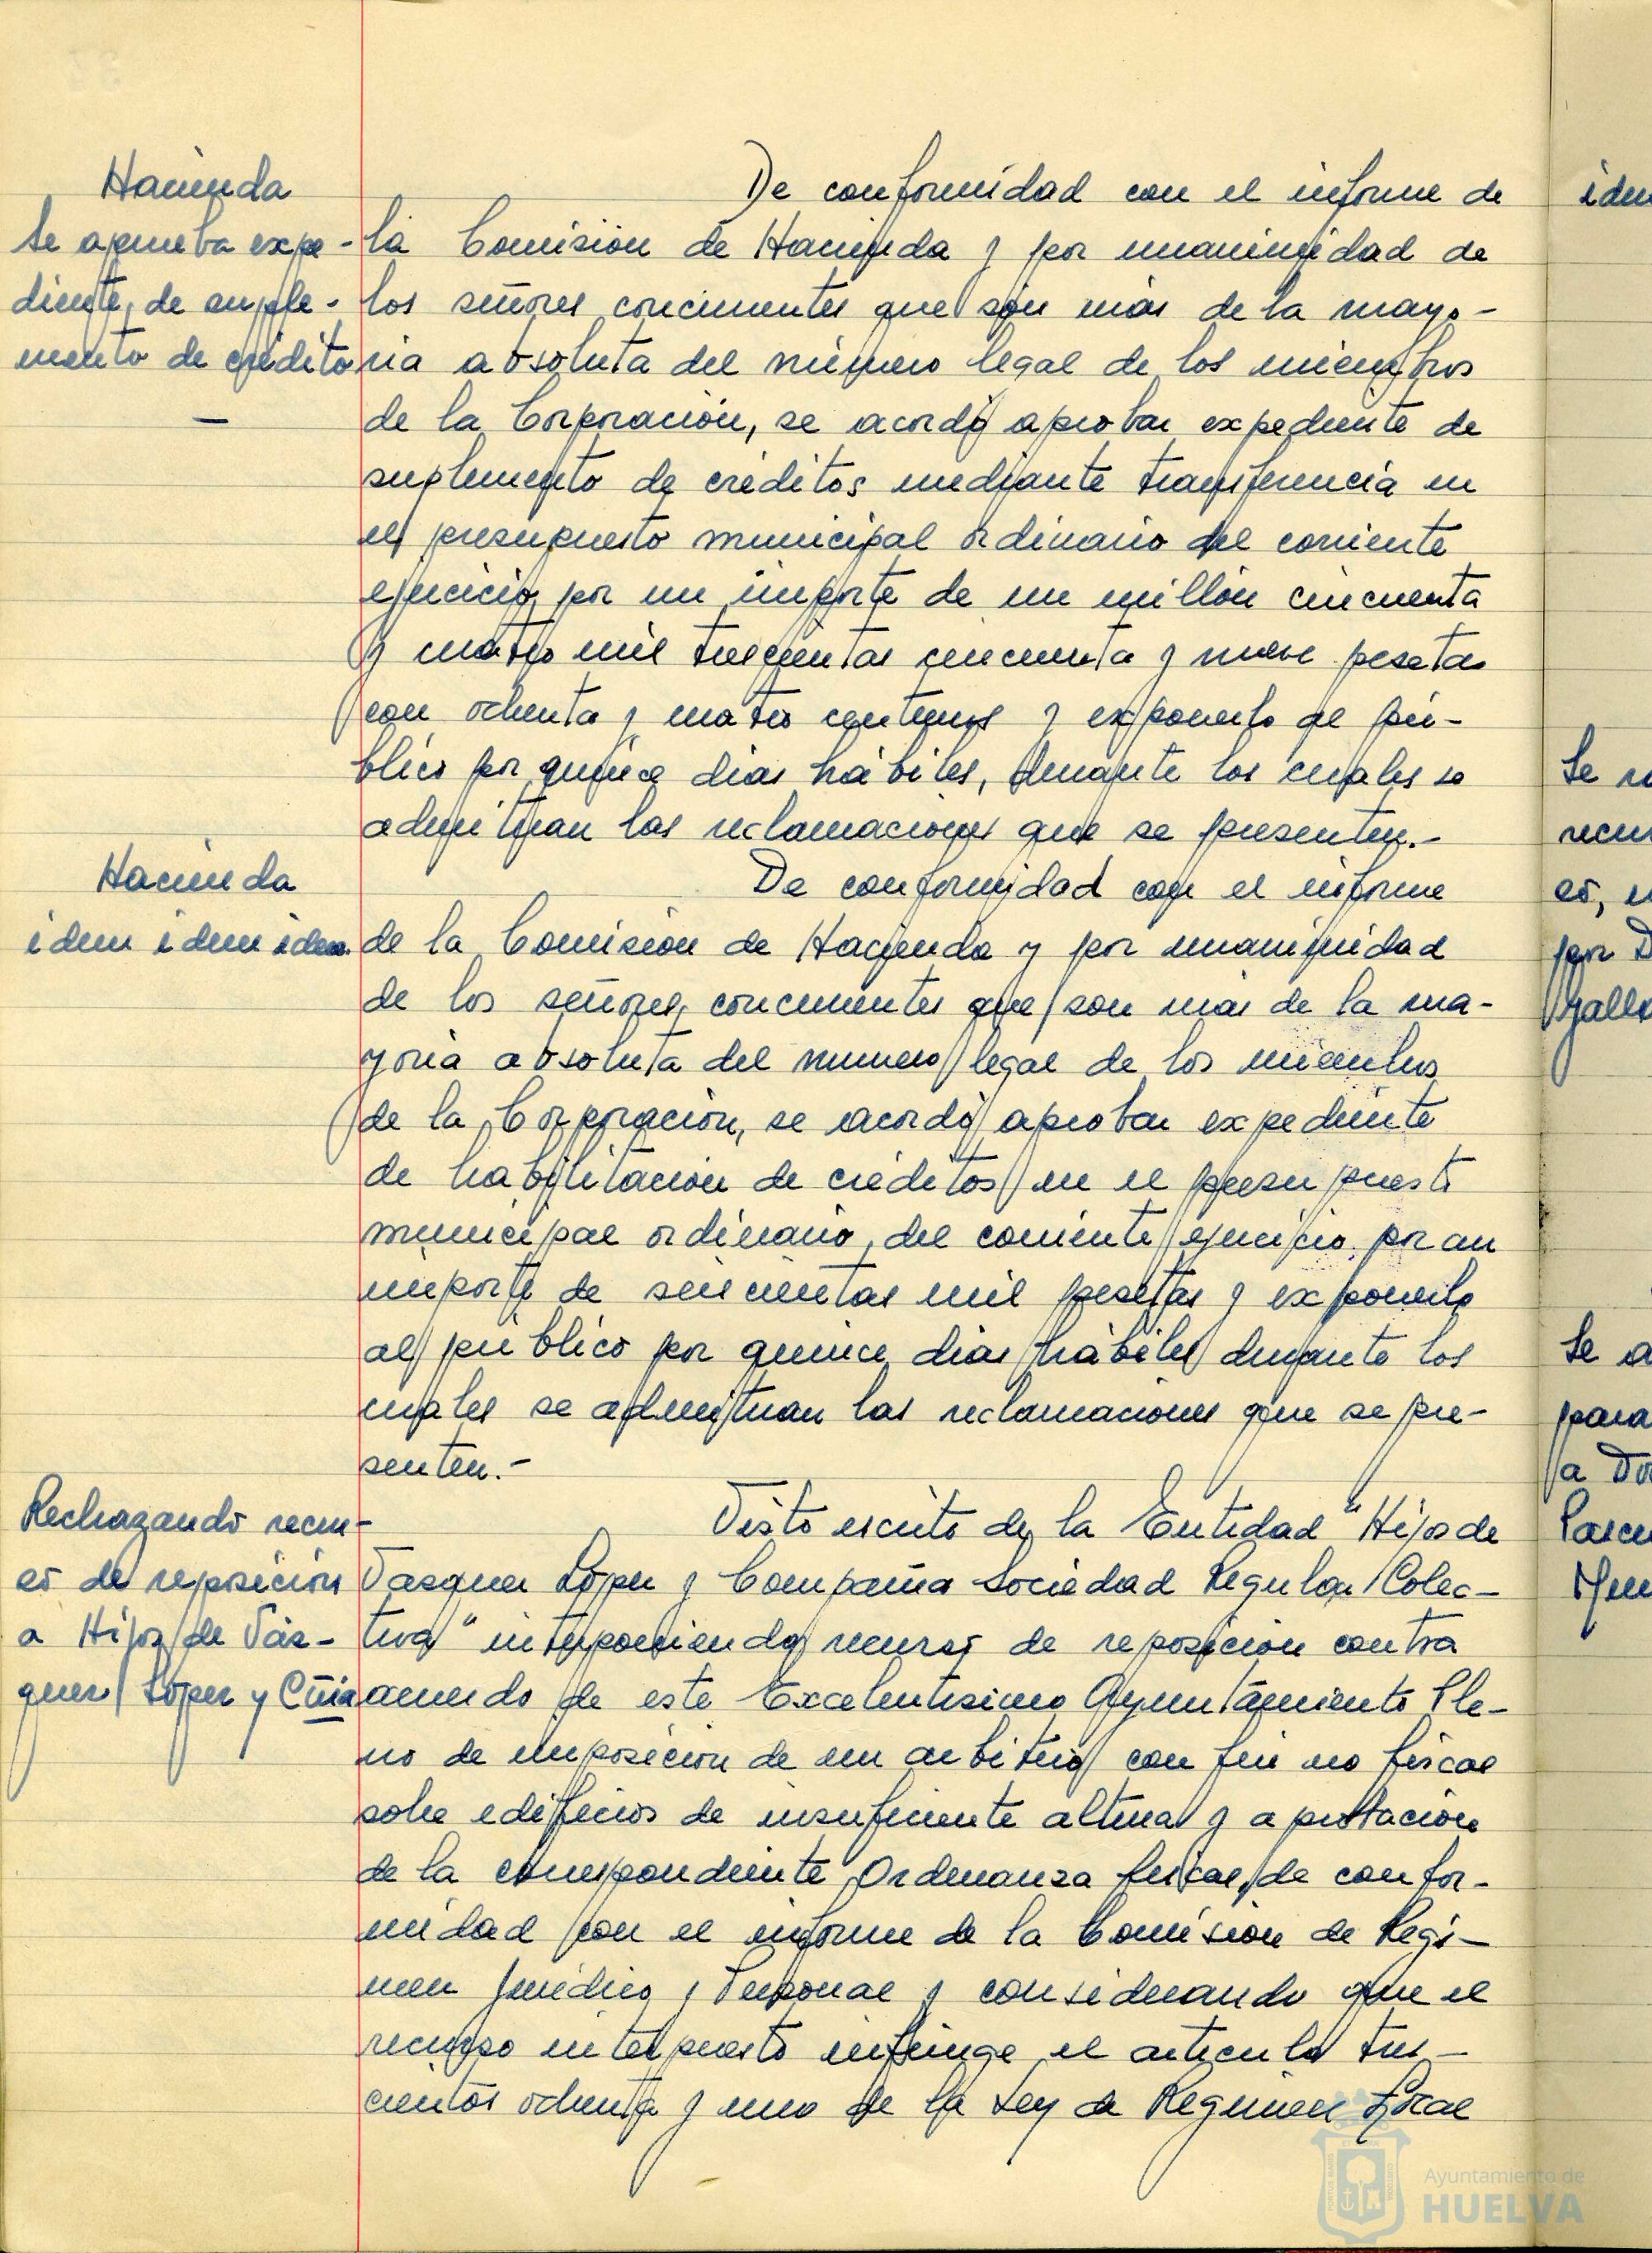 Hacienda
Se aprueba expe-
diente de suple-
mento de crédito
—
De conformidad con el informe de
la Comisión de Hacienda y por unanimidad de
los señores concurrentes que son más de la mayo-
ria absoluta del número legal de los miembros
de la Corporación, se acordó aprobar expediente de
suplemento de créditos mediante transferencia en
el presupuesto municipal ordinario del corriente
ejercicio por un importe de un millón cincuenta
y cuatro mil trescientas cincuenta y nueve pesetas
con ochenta y cuatro centimos y exponerlo al pú-
blico por quince dias hábiles, durante los cuales se
admitiran las reclamaciones que se presenten.-
Hacienda
idem idem idem.
De conformidad con el informe
de la Comisión de Hacienda y por unanimidad
de los señores concurrentes que son más de la ma-
yoria absoluta del numero legal de los miembros
de la Corporación, se acordó aprobar expediente
de habilitación de créditos en el presupuesto
municipal ordinario del corriente ejercicio por un
importe de seiscientas mil pesetas y exponerlo
al público por quince dias hábiles durante los
cuales se admitiran las reclamaciones que se pre-
senten.-
Rechazando recur-
so de reposición
a Hijos de Váz-
quez López y Cñia
Visto escrito de la Entidad "Hijos de
Vasquez López y Compañia Sociedad Regular Colec-
tiva" interponiendo recurso de reposición contra
acuerdo de este Excelentisimo Ayuntamiento Ple-
no de imposición de un arbitrio con fin no fiscal
sobre edificios de insuficiente altura y aprobación
de la correspondiente Ordenanza fiscal, de confor-
midad con el informe de la Comisión de Regi-
men Juridico y Personal y considerando que el
recurso interpuesto infringe el articulo tres-
cientos ochenta y uno de la Ley de Regimen Local
idem
Se
recur
so,
por D
Se a
para
a
Ayuntamiento de
HUELVA